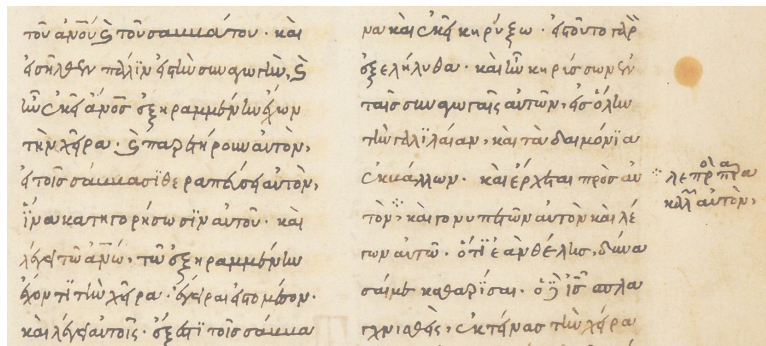 τοῦ ἀνοῦ ϗ τοῦ σαββάτου· καὶ
εἰσῆλθεν πάλϊν εἰς τὴν συναγωγὴν, ϗ
ἦν ἐκεῖ ἄνος ἐξηραμμένην ἔχων
τὴν χεῖρα· ϗ παρετήρουν αὐτὸν,
εἰ τοῖς σάββασϊ θεραπεύσει αὐτὸν,
ἵνα κατηγορήσωσϊν αὐτοῦ· καὶ
λέγει τῶ ἀνῶ, τῶ ἐξηραμμένην
ἔχοντϊ τὴν χεῖρα· ἔγειραι εἰς το μέσον·
καὶ λέγει αὐτοῖς· ἔξεστϊ τοῖς σάββα
να καὶ ἐκεῖ κηρύξω· εἰς τοῦτο γὰρ
ἐξελήλυθα· καὶ ἦν κηρύσσων ἐν
ταῖς συναγωγαῖς αὐτῶν, εἰς ὅλην
τὴν γαλϊλαίαν, καὶ τὰ δαιμόνϊα
ἐκβάλλων· καὶ ἔρχεται πρὸς αὐ
τὸν, καὶ γονυπετῶν αὐτὸν καὶ λέ
γων αὐτῶ· ὅτϊ ἐὰν θέλης, δύνα
σαί με καθαρΐσαι· ὁ δὲ ἰς σπλα
γχνισθεὶς, ἐκτείνας τὴν χεῖρα
αὐτὸν,